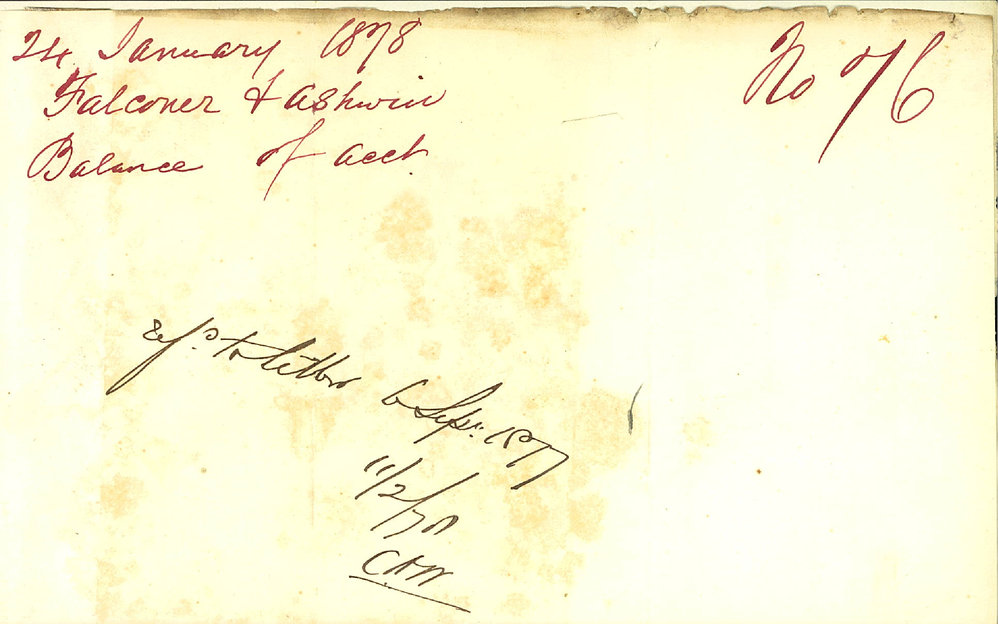 24 January 1878
Falconer & Ashwin
Balance of acct.
No 76
to letter 6 Sep: 1877
11/2/78
CAW